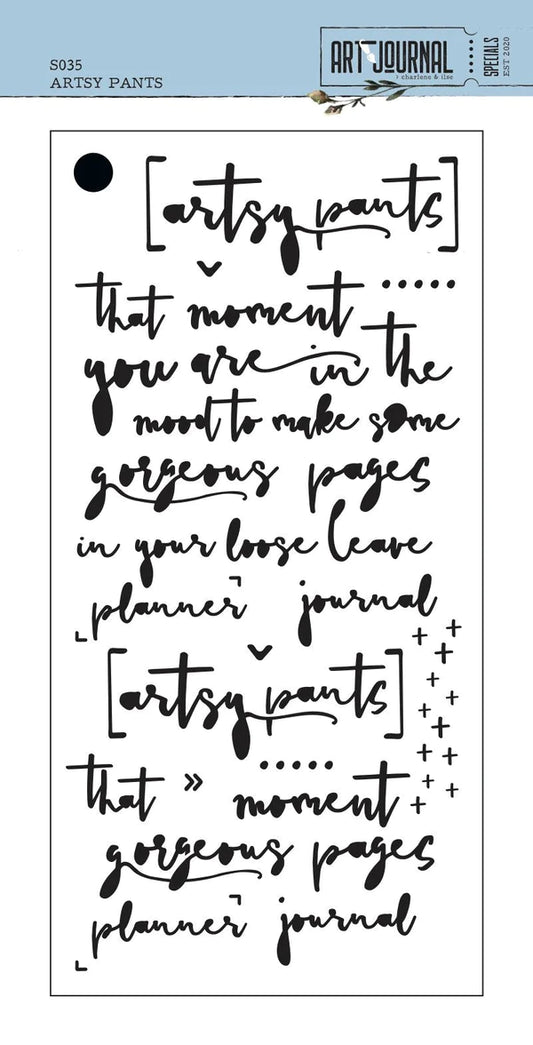 S035
ARTSY PANTS
ART JOURNAL
charlene & ilse
SPECIALS
EST 2020
[artsy pants]
that moment .....
you are in the
mood to make some
gorgeous pages
in your loose leave
planner journal
[artsy pants]
that » moment
gorgeous pages
planner journal